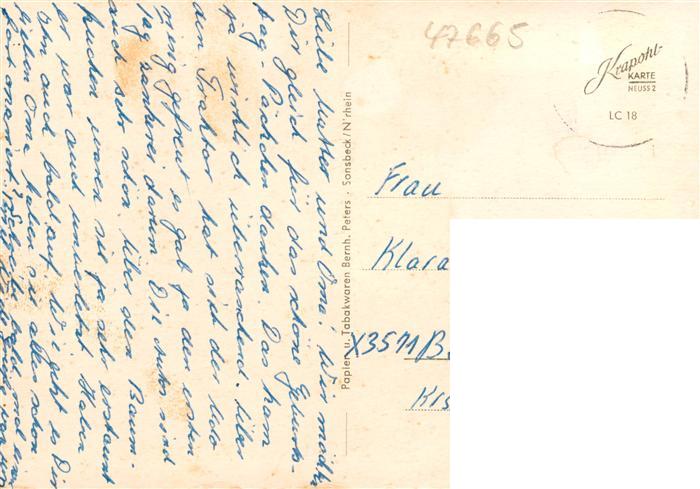 47665
Krapohl-
KARTE
NEUSS 2
LC 18
Frau
Klara
X3571 B.
Krs
Papier u. Tabakwaren Bernh. Peters · Sonsbeck/N'rhein
Liebe Mutter und Oma! Wir möchten
Dir gleich für das schöne Geburts-
tag-Päckchen danken. Das kam
ja wirklich überraschend. Über
den Traktor hat sich der Udo
gefreut es gab ja den ersten
Tag darum. Die Autos sind
auch sehr schön. Über den Baum-
kuchen waren wir ja sehr erstaunt
er war auch unverletzt. Haben
ihn auch bald auf. Wie geht es Dir
liebe Oma haben sie alles schon